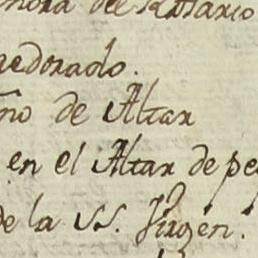 ñora del Rosario
edorado.
no de Altar
en el Altar de pe
de la SS. Virgen.